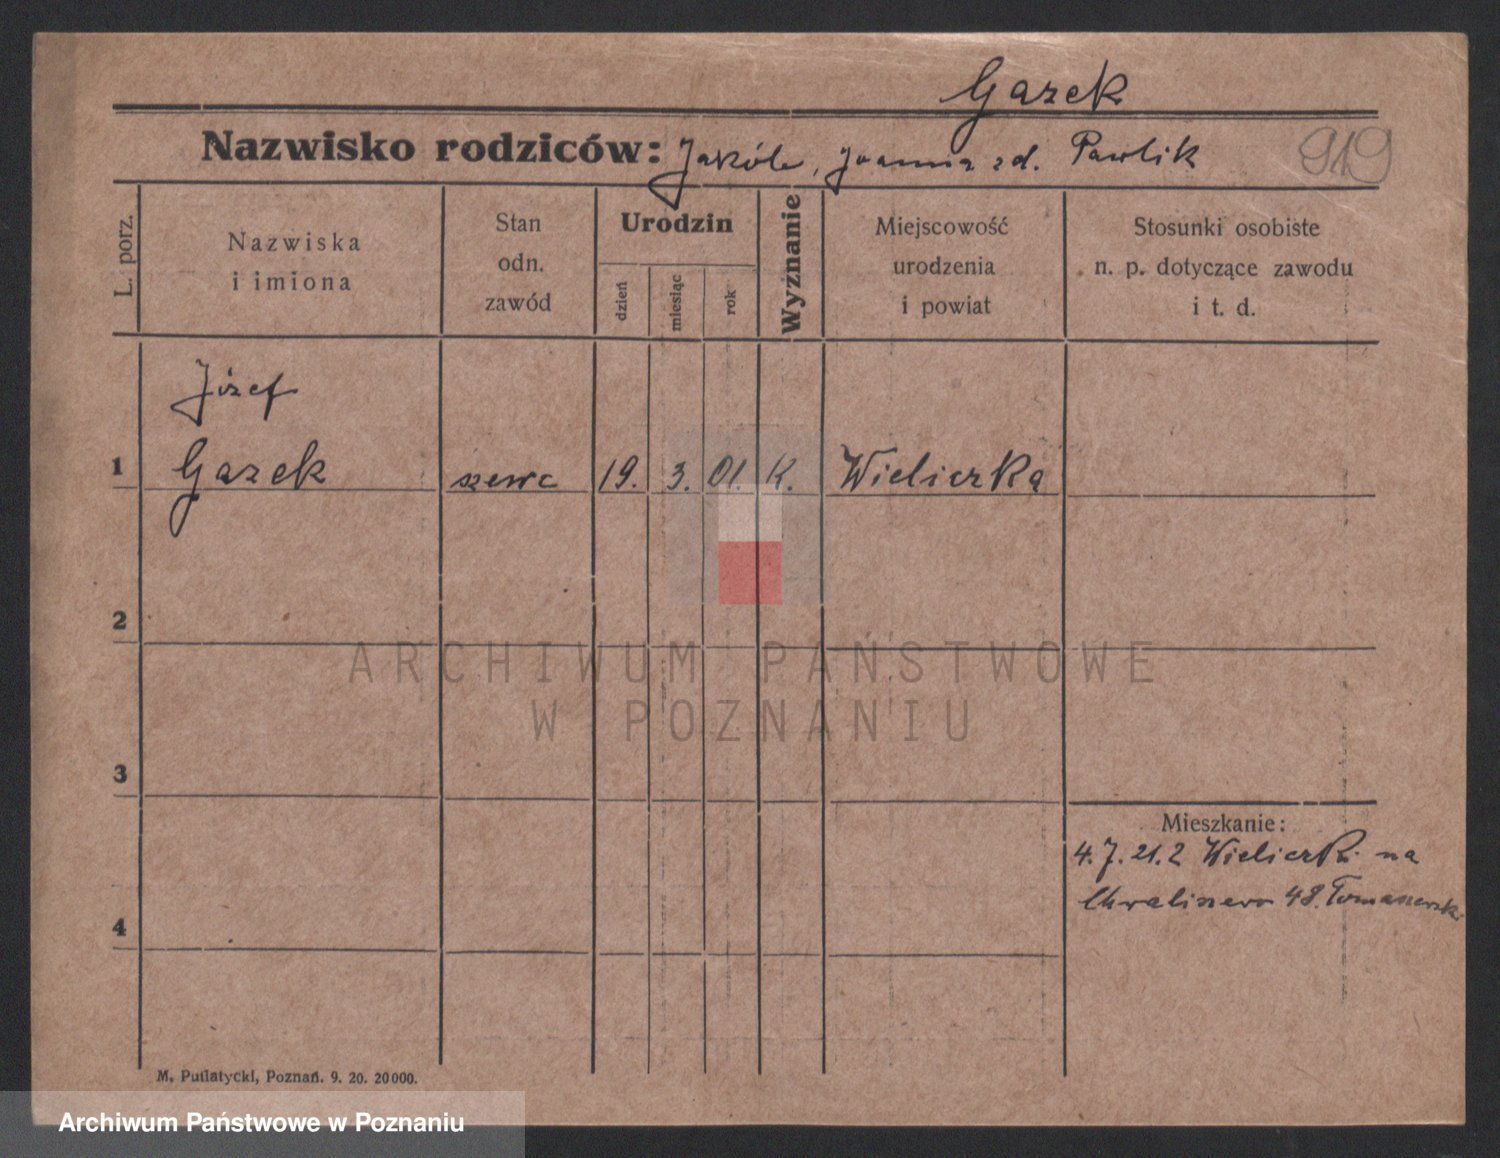 Gazek
Nazwisko rodziców: Jakób, Joanna zd. Pawlik
919
L. porz.
Nazwiska
i imiona
Stan
odn.
zawód
Urodzin
dzień
miesiąc
rok
Wyznanie
Miejscowość
urodzenia
i powiat
Stosunki osobiste
n. p. dotyczące zawodu
i t. d.
Józef
1 Gazek szewc 19. 3. 01. K. Wieliczka
2
3
4
Mieszkanie:
4.7.21.z Wieliczki na
48. Tomaszewski
M. Putiatycki, Poznań. 9. 20. 20000.
ARCHIWUM PAŃSTWOWE
W POZNANIU
Archiwum Państwowe w Poznaniu